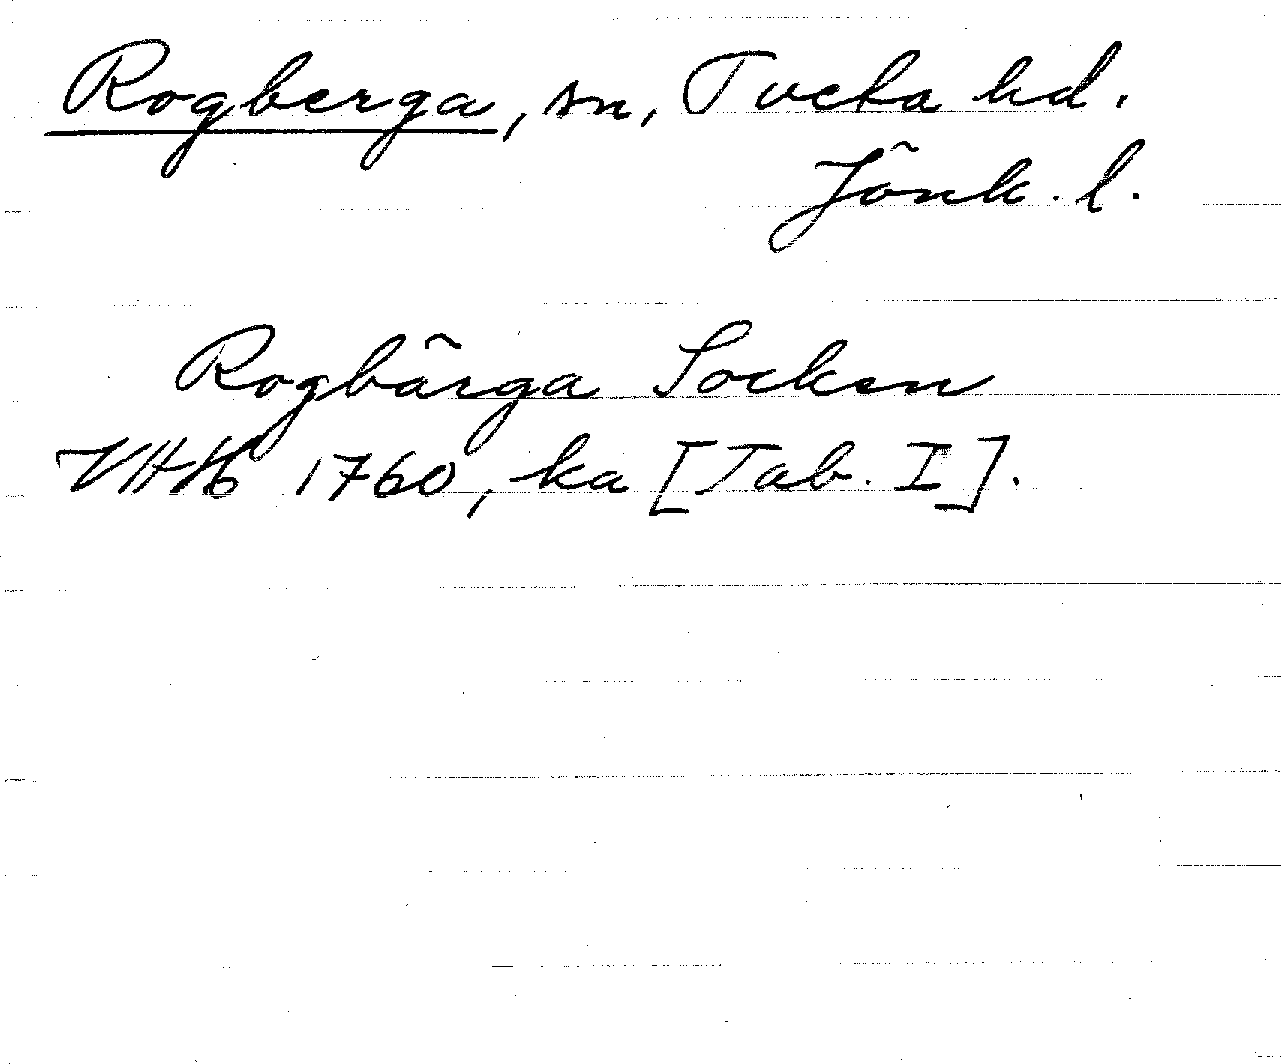 Rogberga, sn, Tveta hd.
Jönk. l.
Rogbärga Socken
VHH 1760, ka [Tab. I].